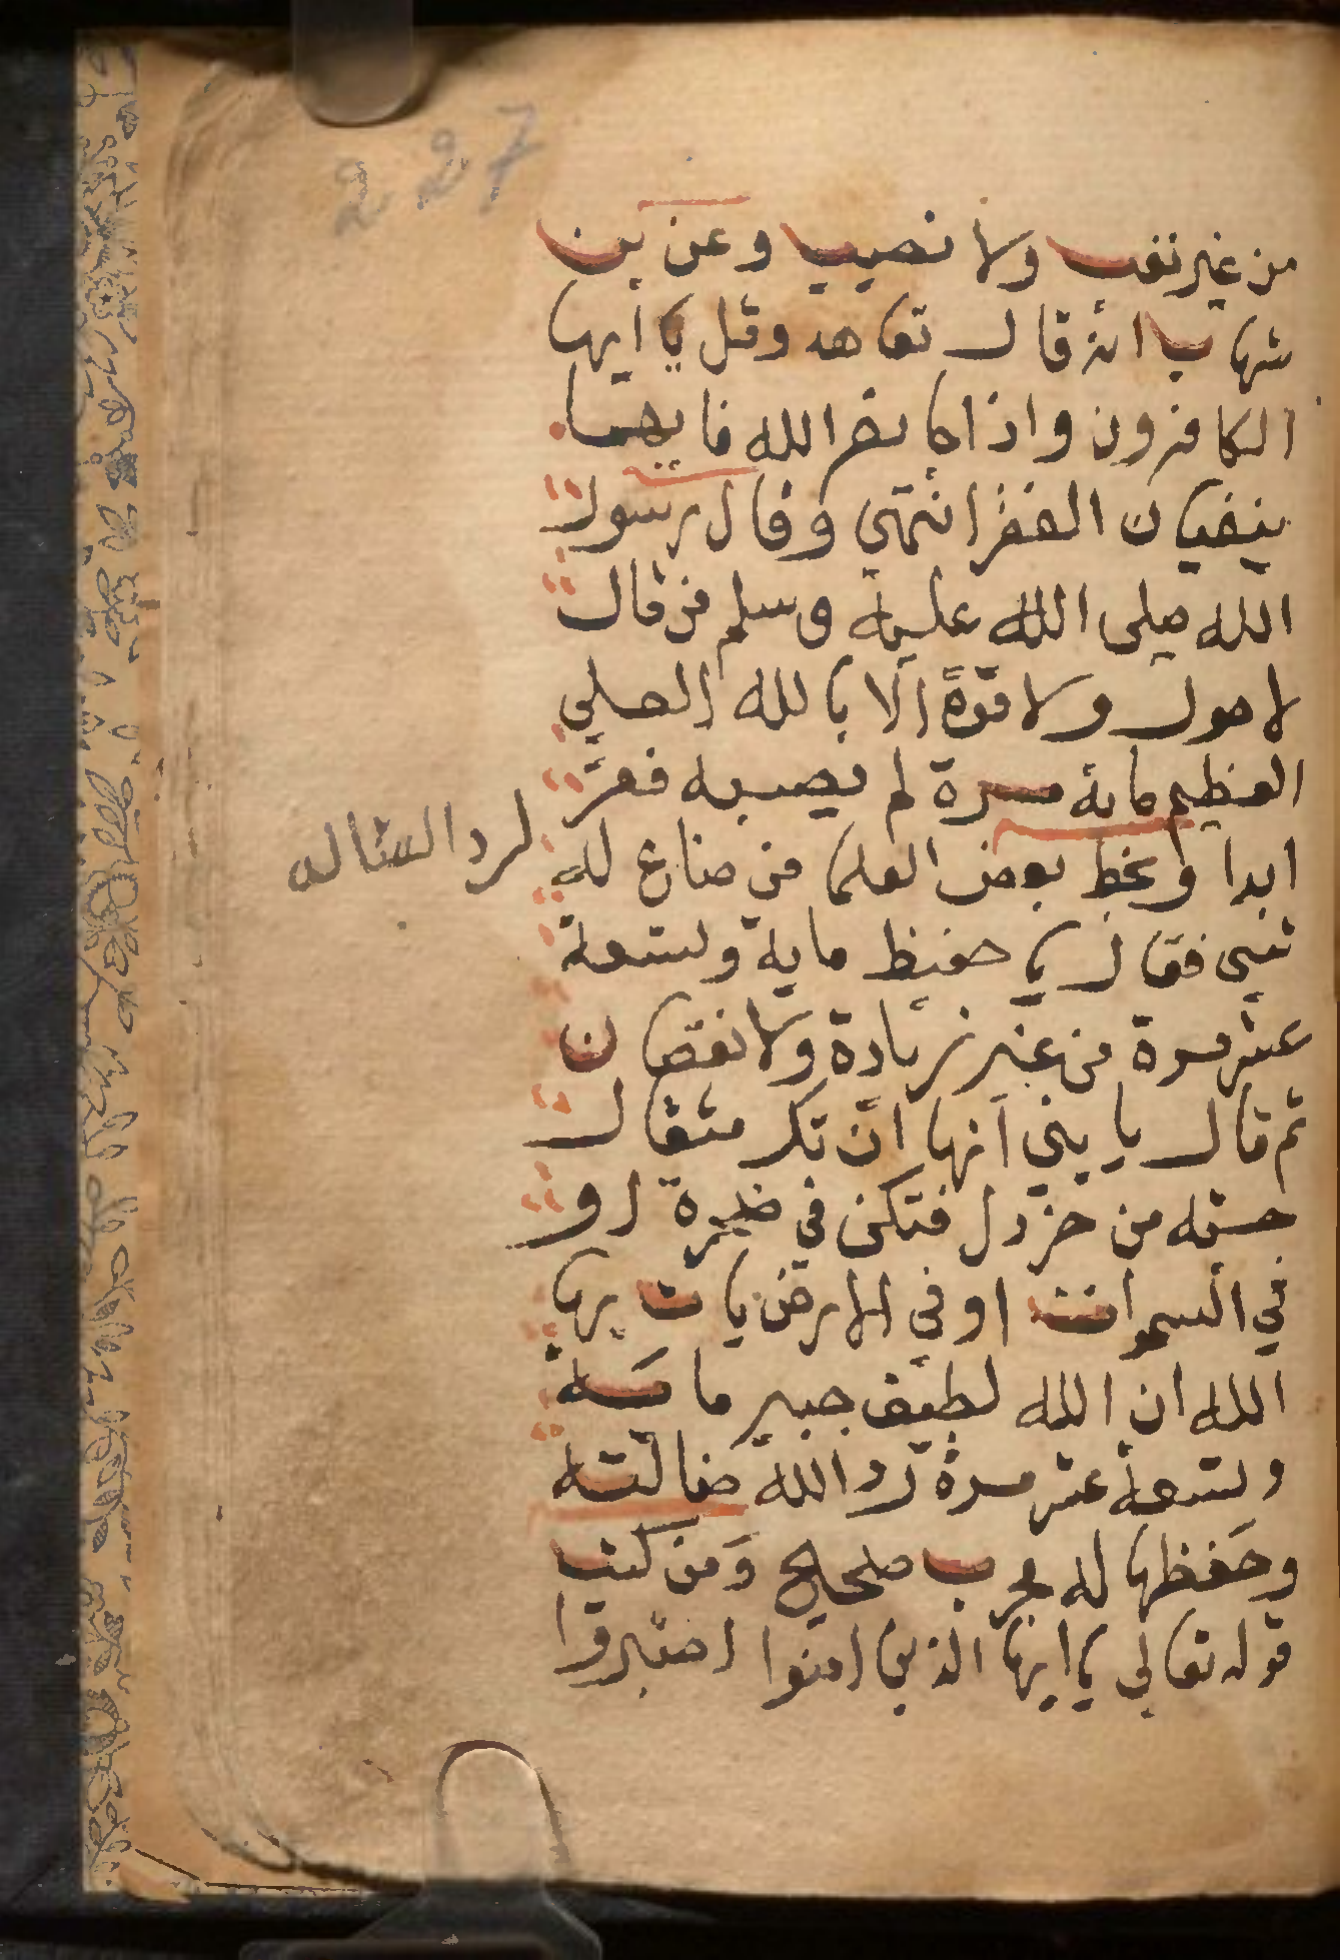 227
من غير تعب ولا نصيب وعن بن
شهاب انه قال تعاهد وقل يا ايها
الكافرون واذا جا نصر الله فانهما
ينفيان الفقر انتهى وقال رسول
الله صلى الله عليه وسلم من قال
لا حول ولا قوة الا بالله العلي
العظيم ماية مرة لم يصبه فقر
ابدا وبخط بعض العلما من ضاع له
لرد الضاله
شى فقال يا حفيظ ماية وتسعة
عشر مرة من غير زيادة ولا نقصان
ثم قال يا بني انها ان تك مثقال
حبه من خردل فتكن في صخرة او
في السموات او في الارض يات بها
الله ان الله لطيف خبير مايه
وتسعة عشر مرة رد الله ضالته
وحفظها له مجرب صحيح ومن كتب
قوله تعالى يا ايها الذين امنوا اصبروا